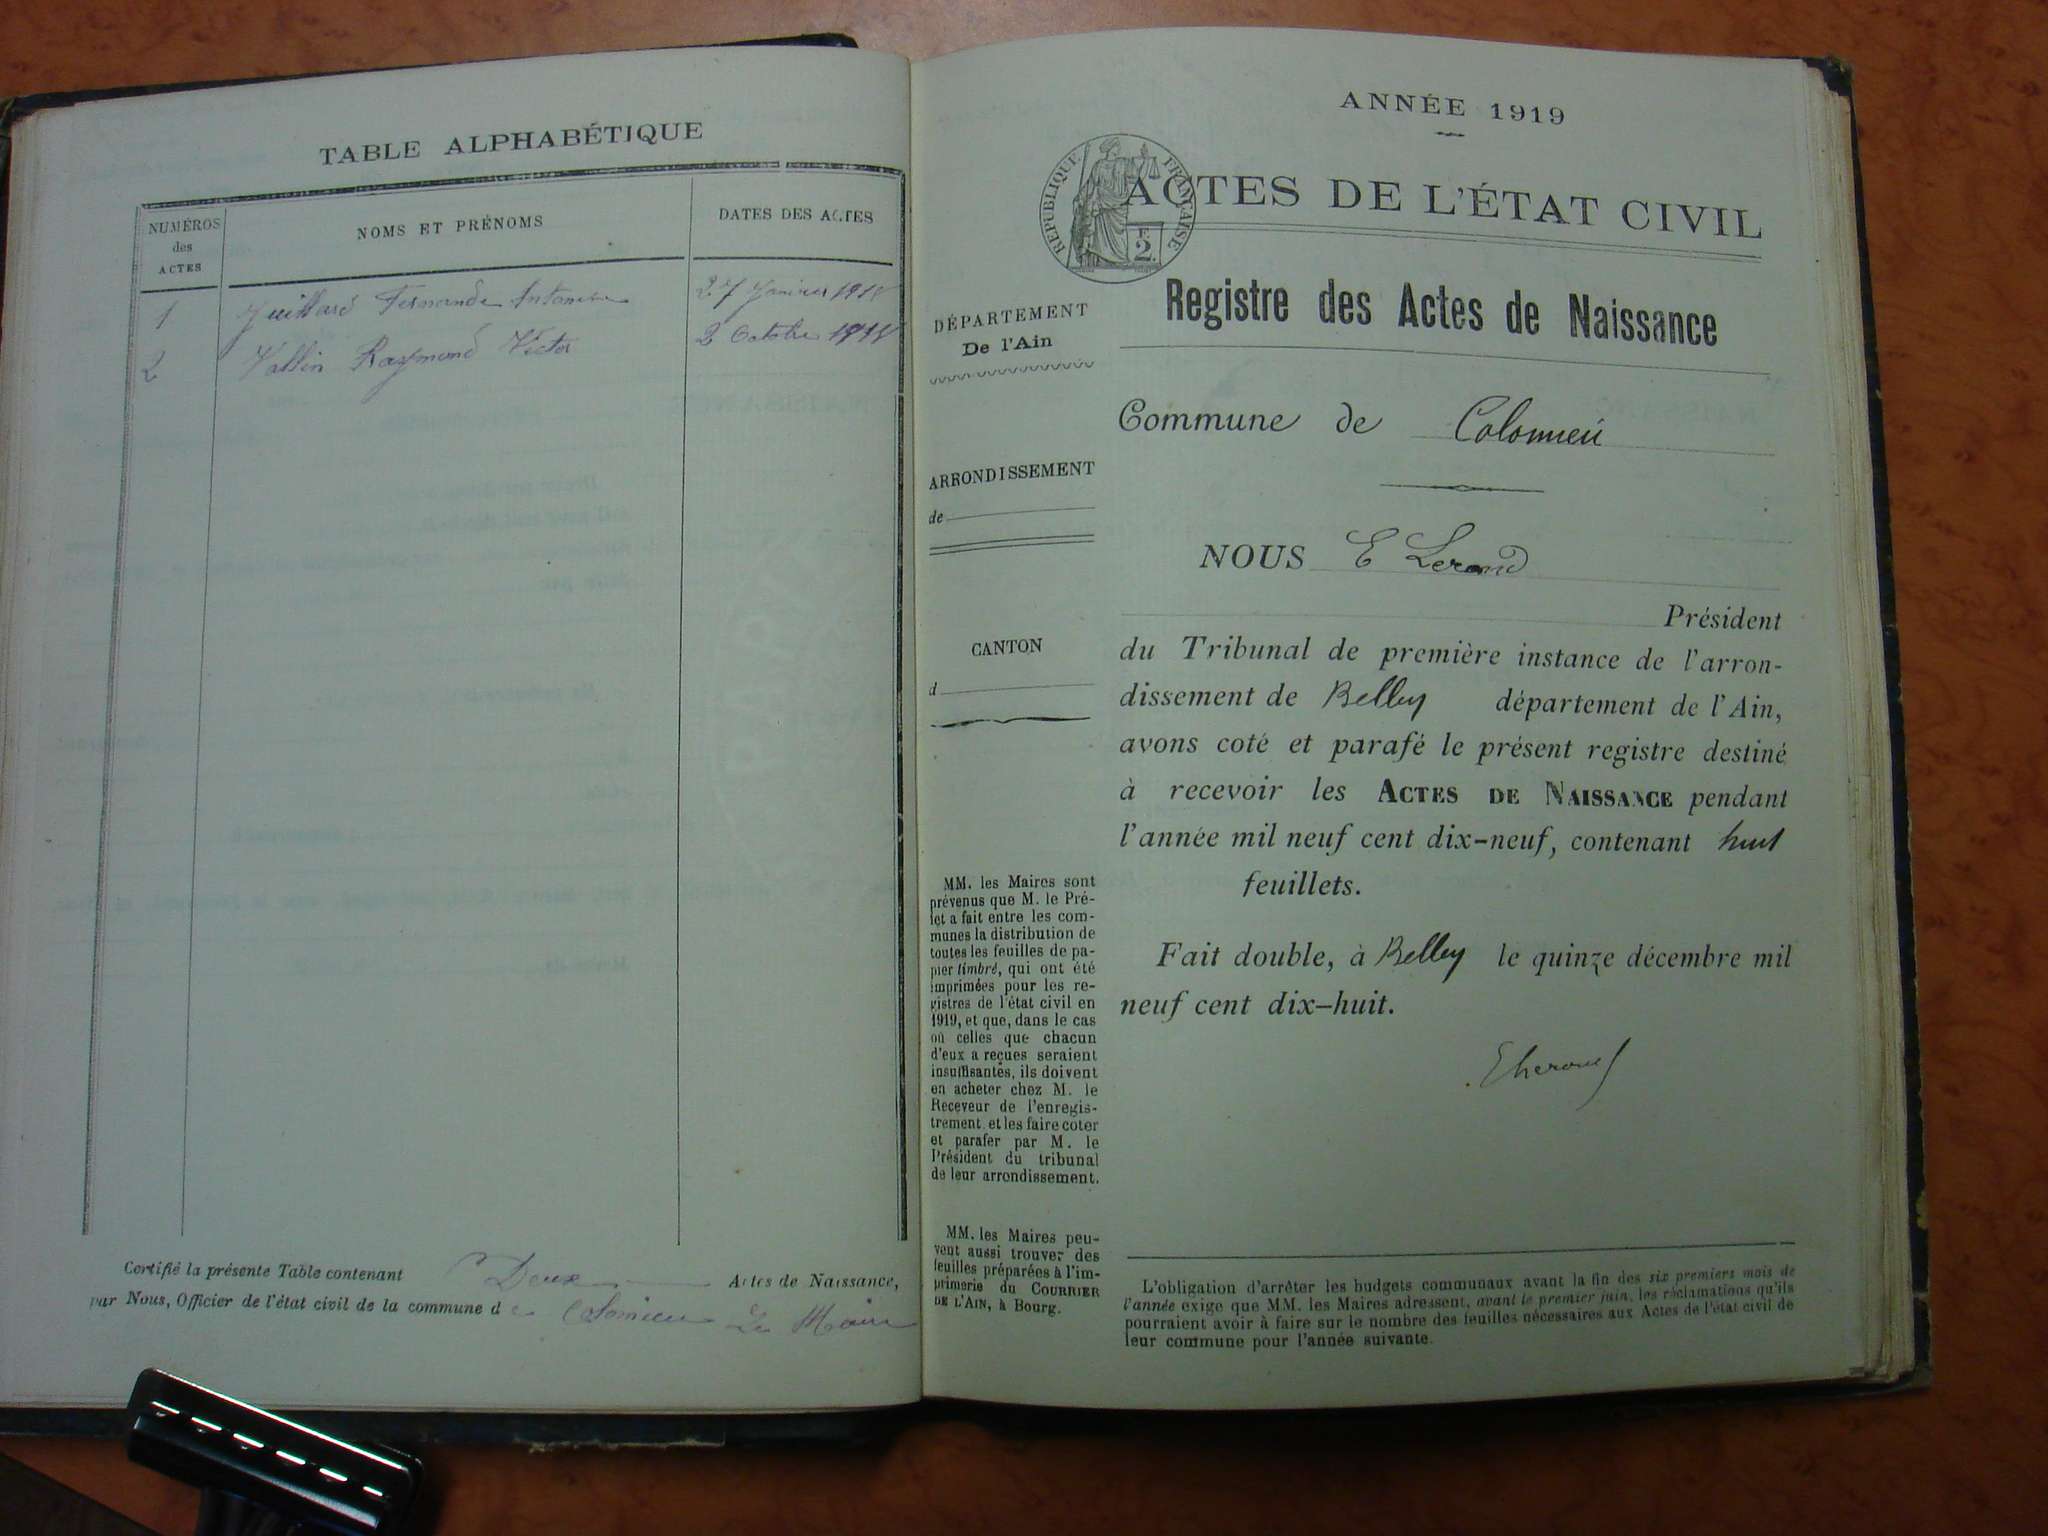 TABLE ALPHABÉTIQUE
NUMÉROS
des
ACTES
NOMS ET PRÉNOMS
DATES DES ACTES
1 Juillard Fernande 27 Janvier 1918
2 Vallin Raymond Victor 2 Octobre 1918
Certifié la présente Table contenant Deux Actes de Naissance,
par Nous, Officier de l'état civil de la commune de Colomieu Le Maire
ANNÉE 1919
RÉPUBLIQUE FRANÇAISE
F.
2.
ACTES DE L'ÉTAT CIVIL
Registre des Actes de Naissance
DÉPARTEMENT
De l'Ain
Commune de Colomieu
ARRONDISSEMENT
de
NOUS E
Président
CANTON
d
du Tribunal de première instance de l'arron-
dissement de Belley département de l'Ain,
avons coté et parafé le présent registre destiné
à recevoir les ACTES DE NAISSANCE pendant
l'année mil neuf cent dix-neuf, contenant huit
feuillets.
Fait double, à Belley le quinze décembre mil
neuf cent dix-huit.
MM. les Maires sont
prévenus que M. le Pré-
fet a fait entre les com-
munes la distribution de
toutes les feuilles de pa-
pier timbré, qui ont été
imprimées pour les re-
gistres de l'état civil en
1919, et que, dans le cas
où celles que chacun
d'eux a reçues seraient
insuffisantes, ils doivent
en acheter chez M. le
Receveur de l'enregis-
trement et les faire coter
et parafer par M. le
Président du tribunal
de leur arrondissement.
MM. les Maires peu-
vent aussi trouver des
feuilles préparées à l'im-
primerie du COURRIER
DE L'AIN, à Bourg.
L'obligation d'arrêter les budgets communaux avant la fin des six premiers mois de
l'année exige que MM. les Maires adressent, avant le premier juin, les réclamations qu'ils
pourraient avoir à faire sur le nombre des feuilles nécessaires aux Actes de l'état civil de
leur commune pour l'année suivante.